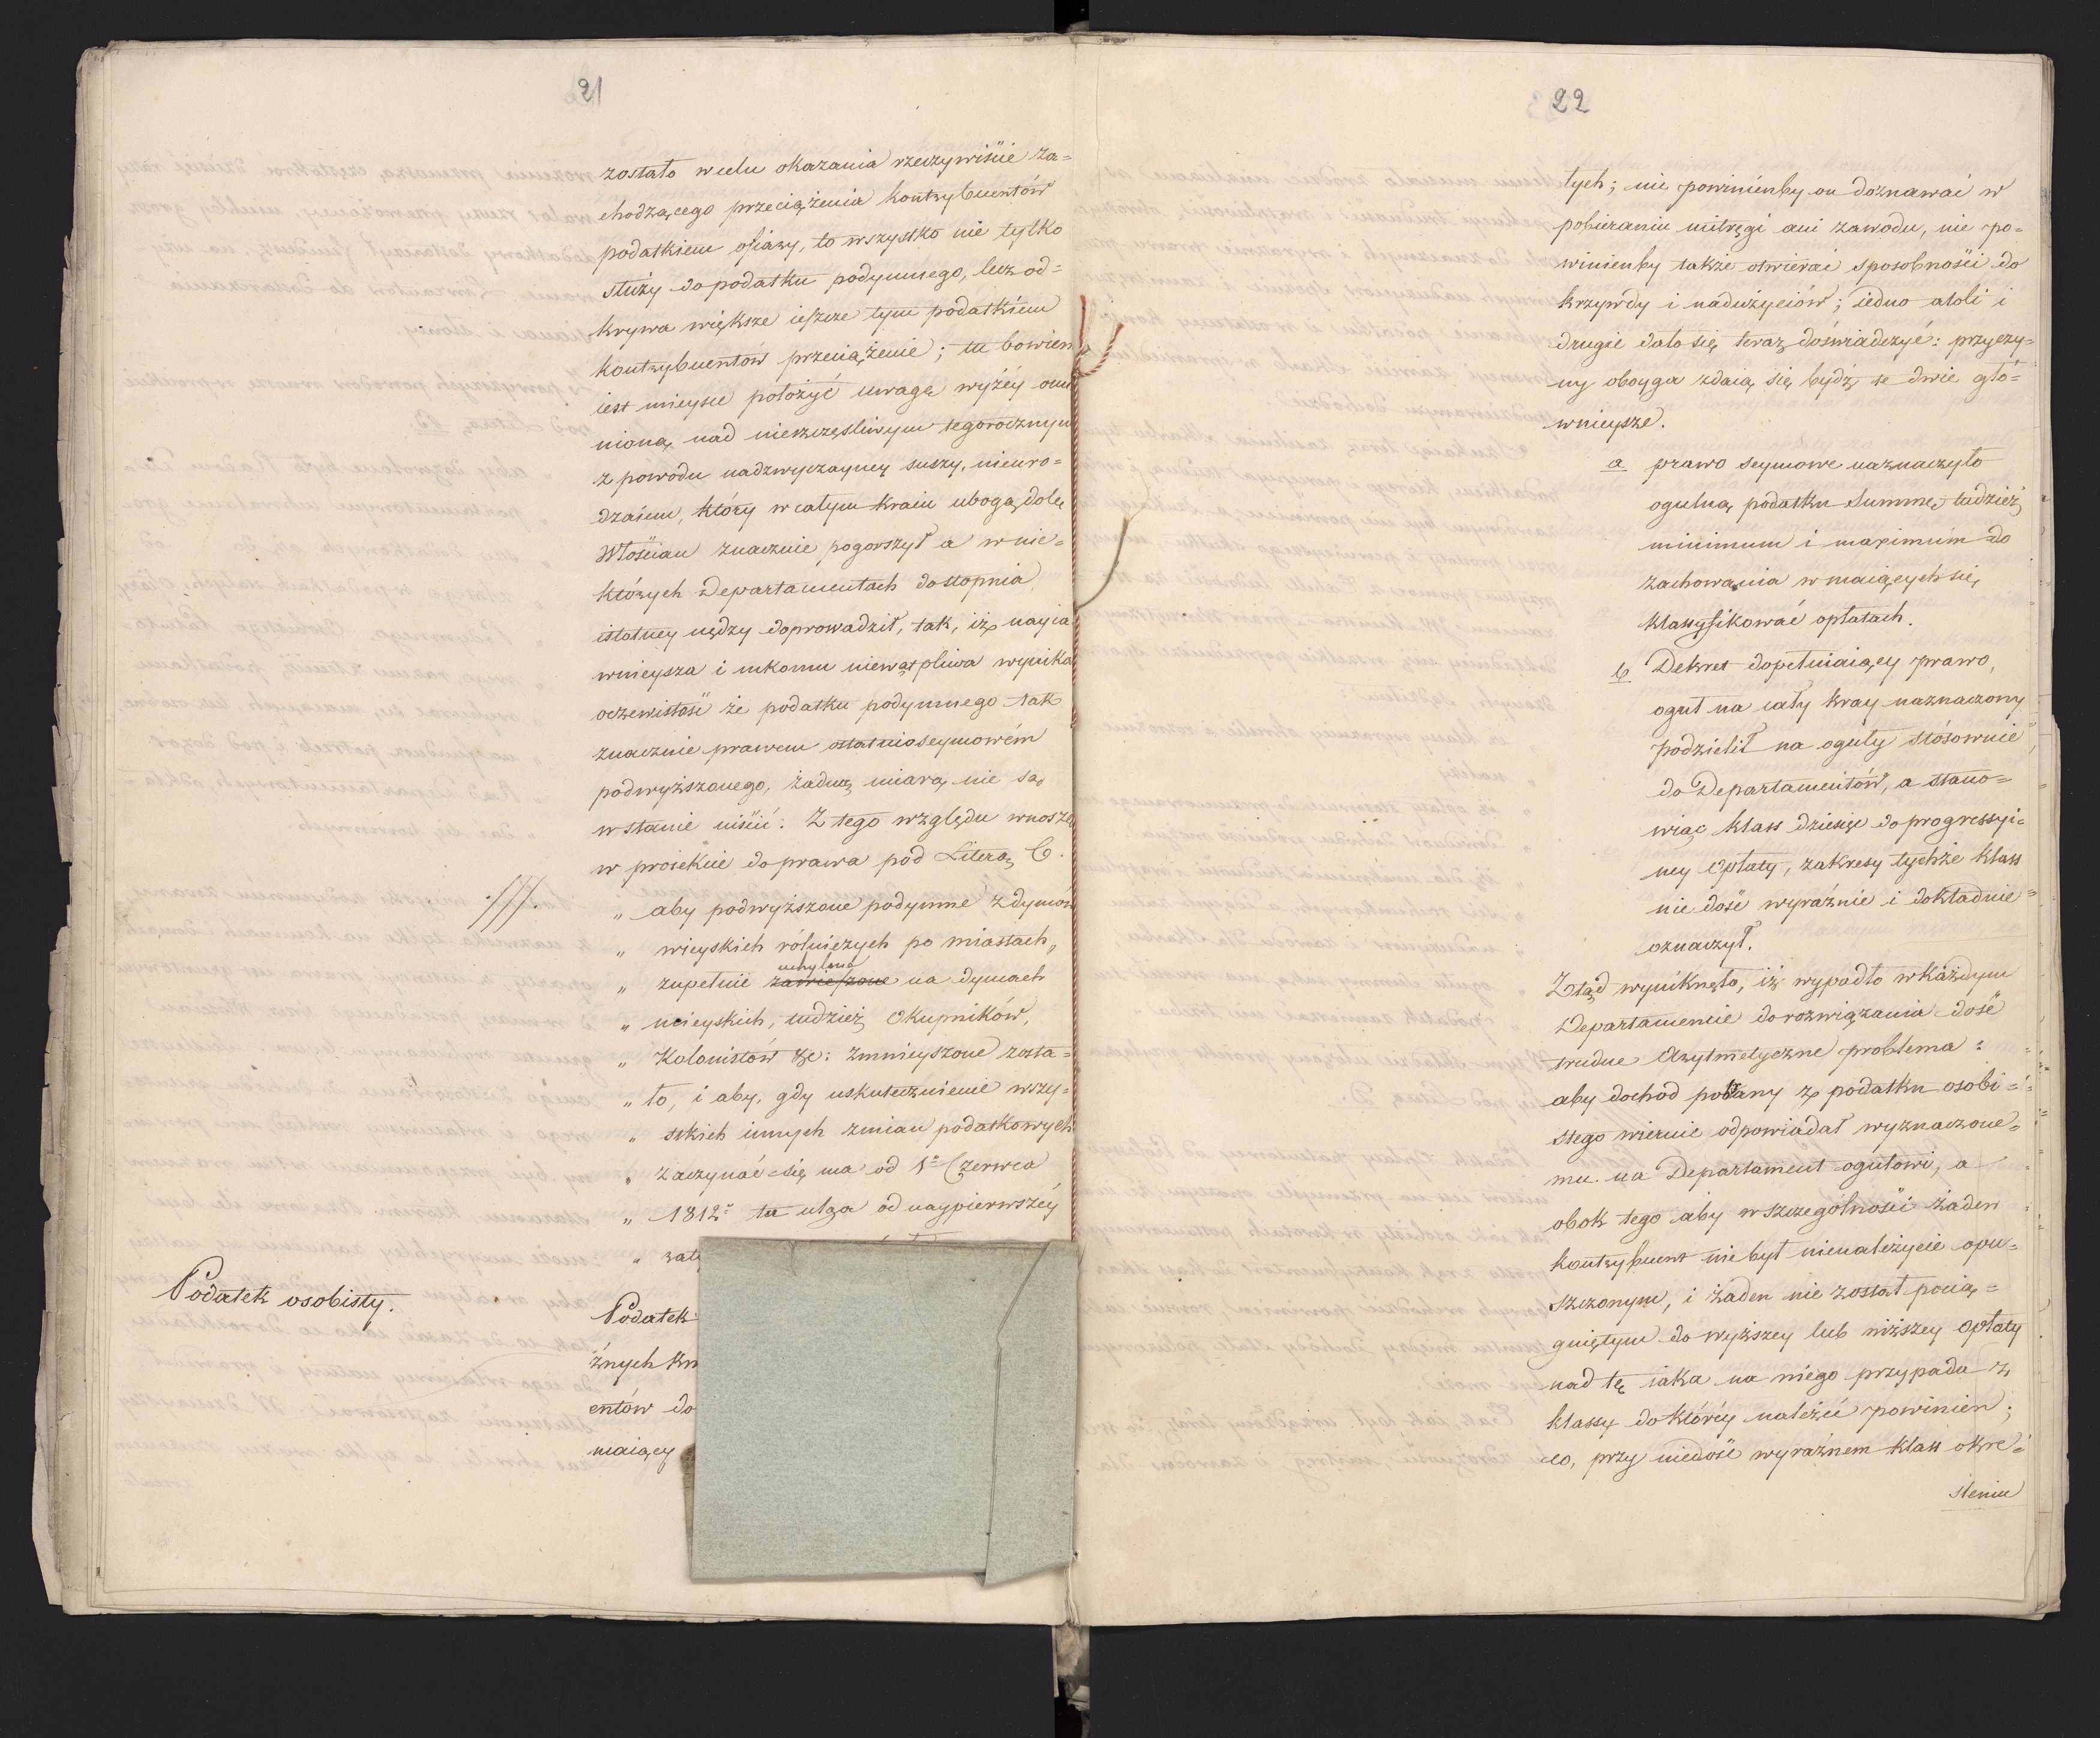 21
zostało wcelu okazania rzeczywiście za=
chodzącego przeciążenia kontrybuentów
podatkiem ofiary, to wszystko nie tylko
służy do podatku podymnego, lecz od=
krywa większe ieszcze tym podatkiem
kontrybuentów przeciążenie; tu bowiem
iest mieysce położyć uwagę wyżéy
nioną, nad nieszczęśliwym tegorocznym
z powodu nadzwyczayney suszy, nieuro=
dzaiem, który w całym Kraiu ubogą dolę
Włościan znacznie pogorszył a w nie=
których Departamentach do stopnia
istotney nędzy doprowadził, tak, iż nayia
wnieysza i nikomu niewątpliwa wynika
oczewistość że podatku podymnego tak
znacznie prawem ostatnio seymowém
podwyższonego, żadną miarą nie są
w stanie uiścić. Z tego względu wnoszę
w proiekcie do prawa pod Literą C.
.///.
„ aby podwyższone podymne z dymów
„ wieyskich rólniczych po miastach,
uchylone
„ zupełnie zawieszone na dymach
„ mieyskich, tudzież Okupników,
„ Kolonistów &c: zmnieyszone zosta=
„ ło, i aby, gdy uskutecznienie wszy=
„ stkich innych zmian podatkowych
„ zaczynać się ma od 1º Czerwca
„ 1812º ta ulga od naypierwszéy
„ raty
Podatek osobisty.
Podatek
żnych
entów do
maiący
22
tych; nie powinienby on doznawać w
pobieraniu mitręgi ani zawodu, nie po=
winienby także otwierać sposobności do
krzywdy i nadużyciów; iedno atoli i
drugie dało się teraz doświadczyć: przyczy=
ny oboyga zdaią się bydź te dwie głó=
wnieysze.
a prawo seymowe naznaczyło
ogulną podatku Summę, tudzież
minimum i maximum do
zachowania w maiących się
klassyfikować opłatach.
b Dekret dopełniaiący prawo,
oguł na cały kray naznaczony
podzielił na oguły stósownie
do Departamentów, a stano=
wiąc klass dziesięć do progressyi=
ney Opłaty, zakresy tychże klass
nie dość wyraźnie i dokładnie
oznaczył.
Ztąd wyniknęło, iż wypadło w każdym
Departamencie do rozwiązania dość
trudne Arytmetyczne problema:
aby dochod podany z podatku osobi=
stego wiernie odpowiadał wyznaczone=
mu na Departament ogułowi, a
obok tego aby w szczególności żaden
kontrybuent nie był nienależycie opu=
szczonym, i żaden nie został pocią=
gniętym do wyższey lub niższey Opłaty
nad tę iaka na niego przypada z
klassy do któréy należéć powinien;
co, przy niedość wyraźném klass okre=
śleniu